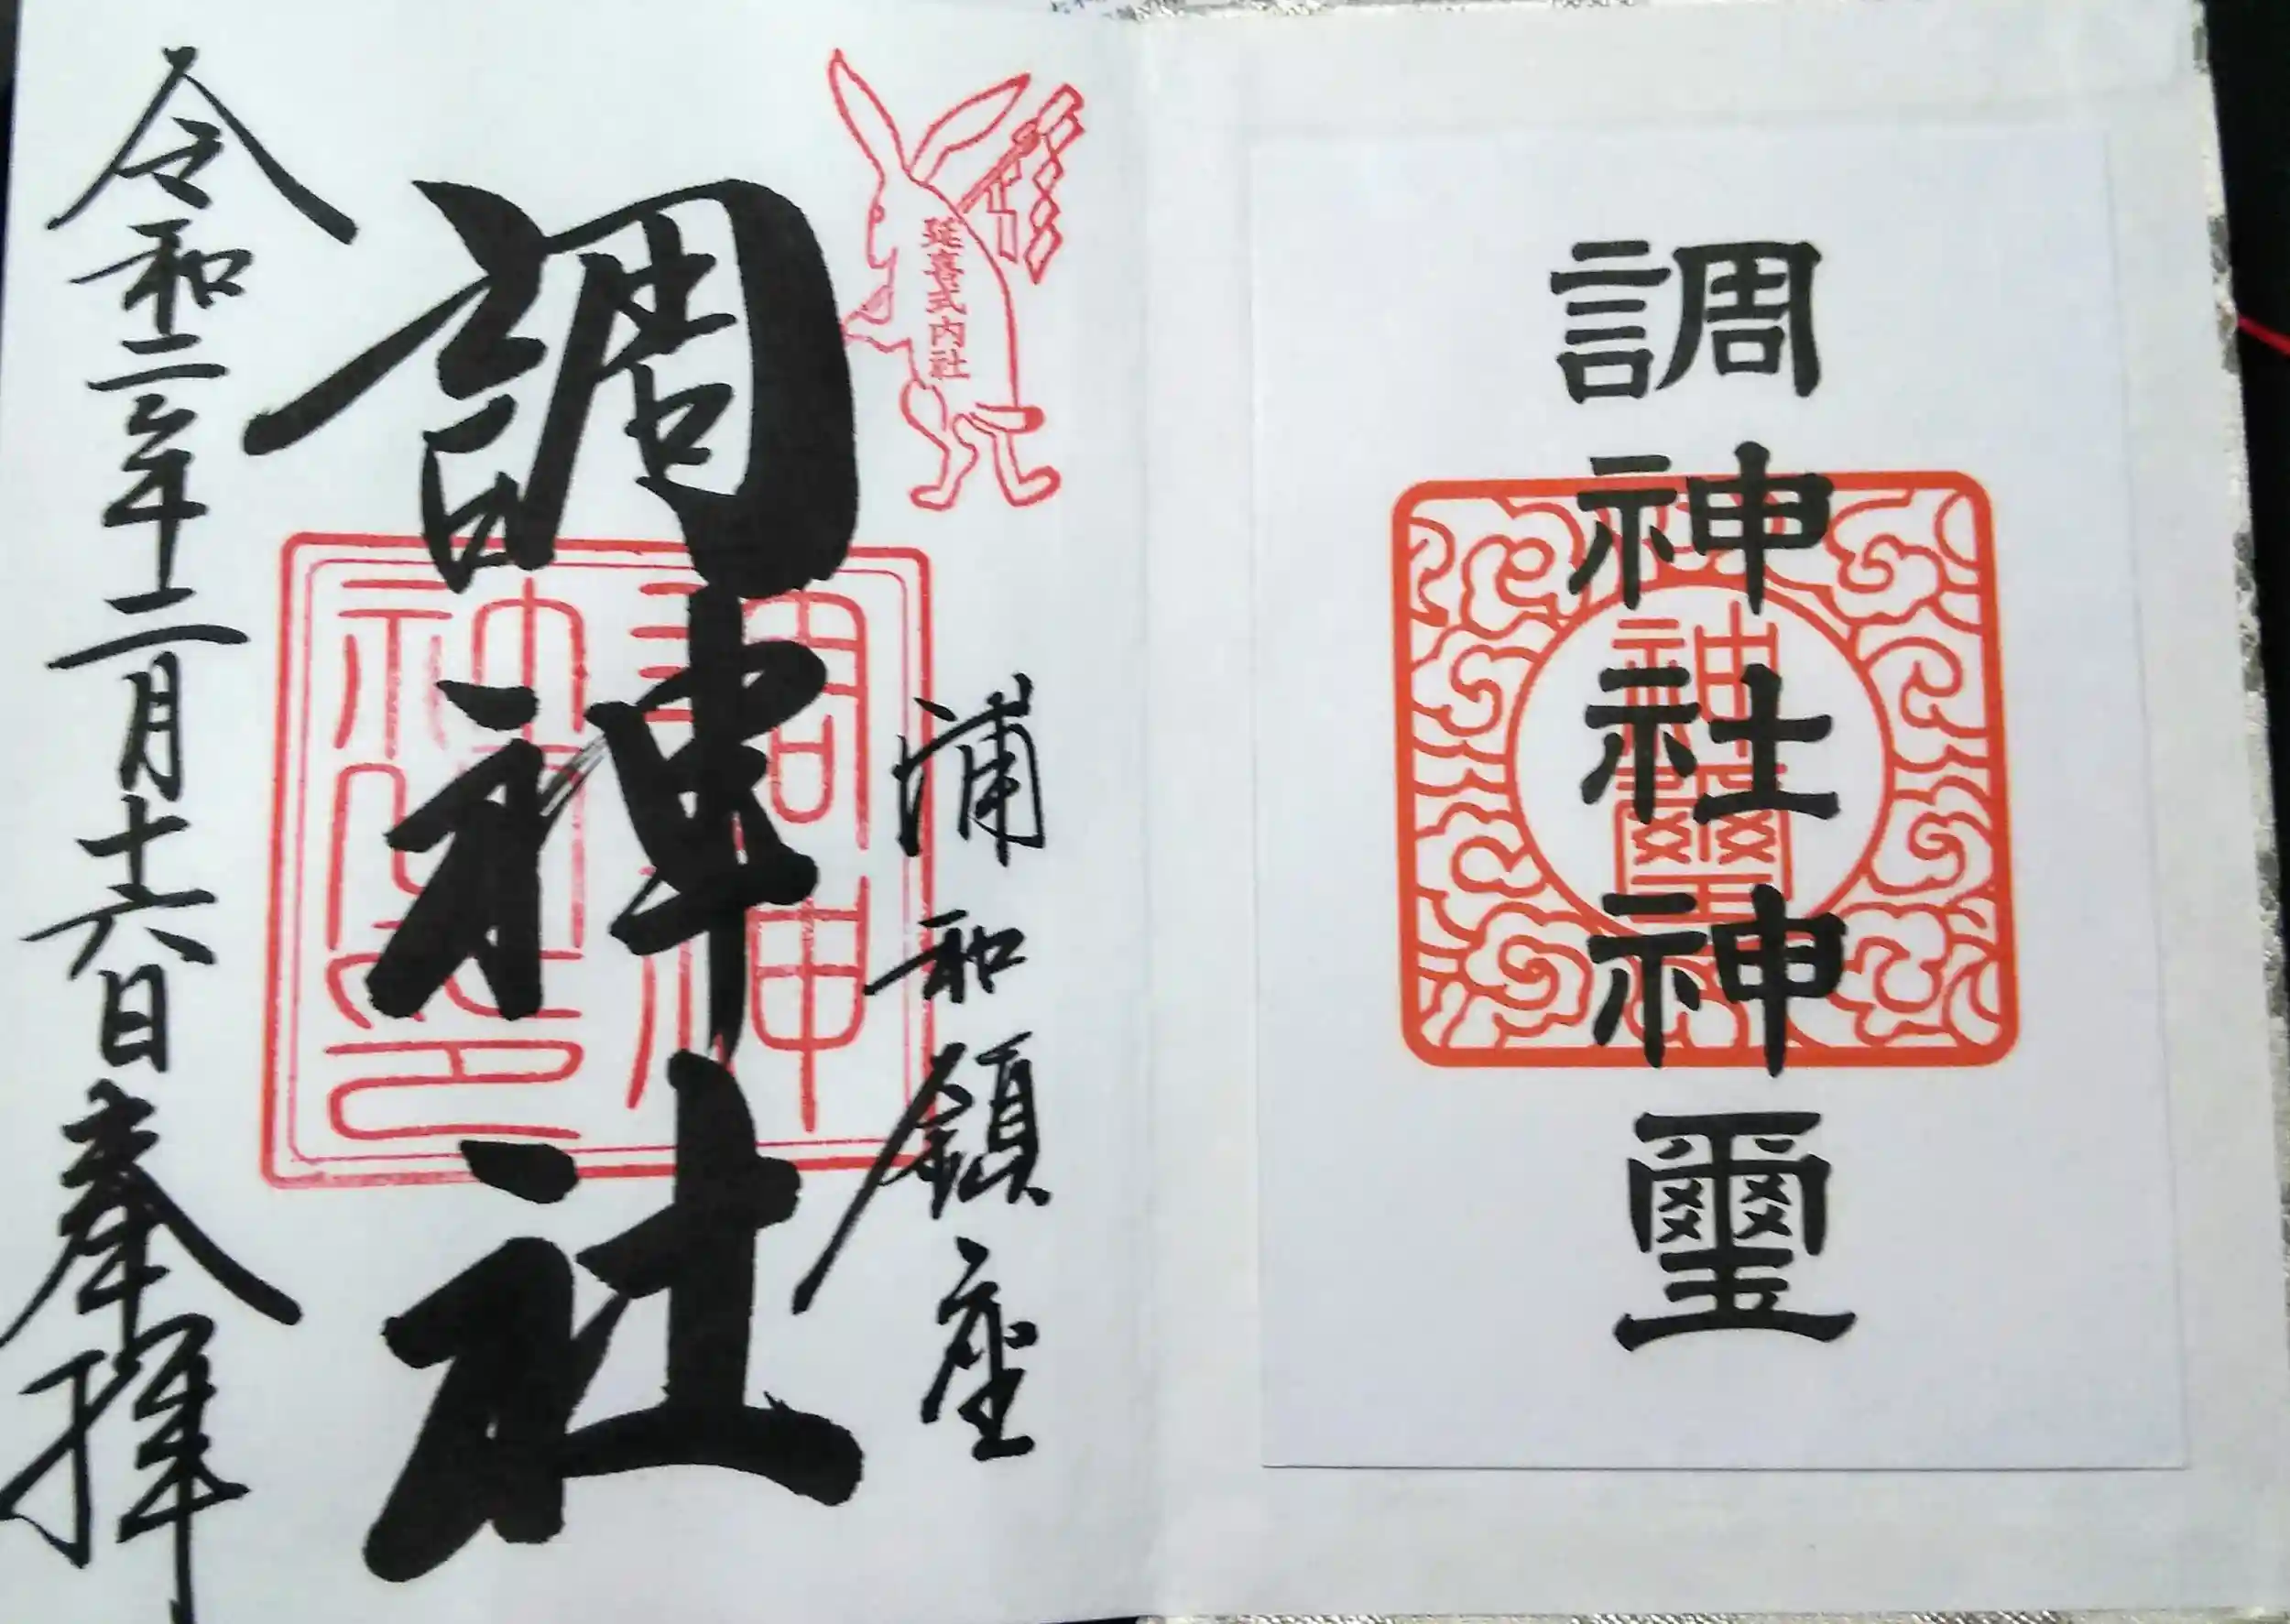 調神社神璽
神璽
延喜式内社
浦和鎮座
調神社
調神
神社之印
令和二年十二月十六日奉拝